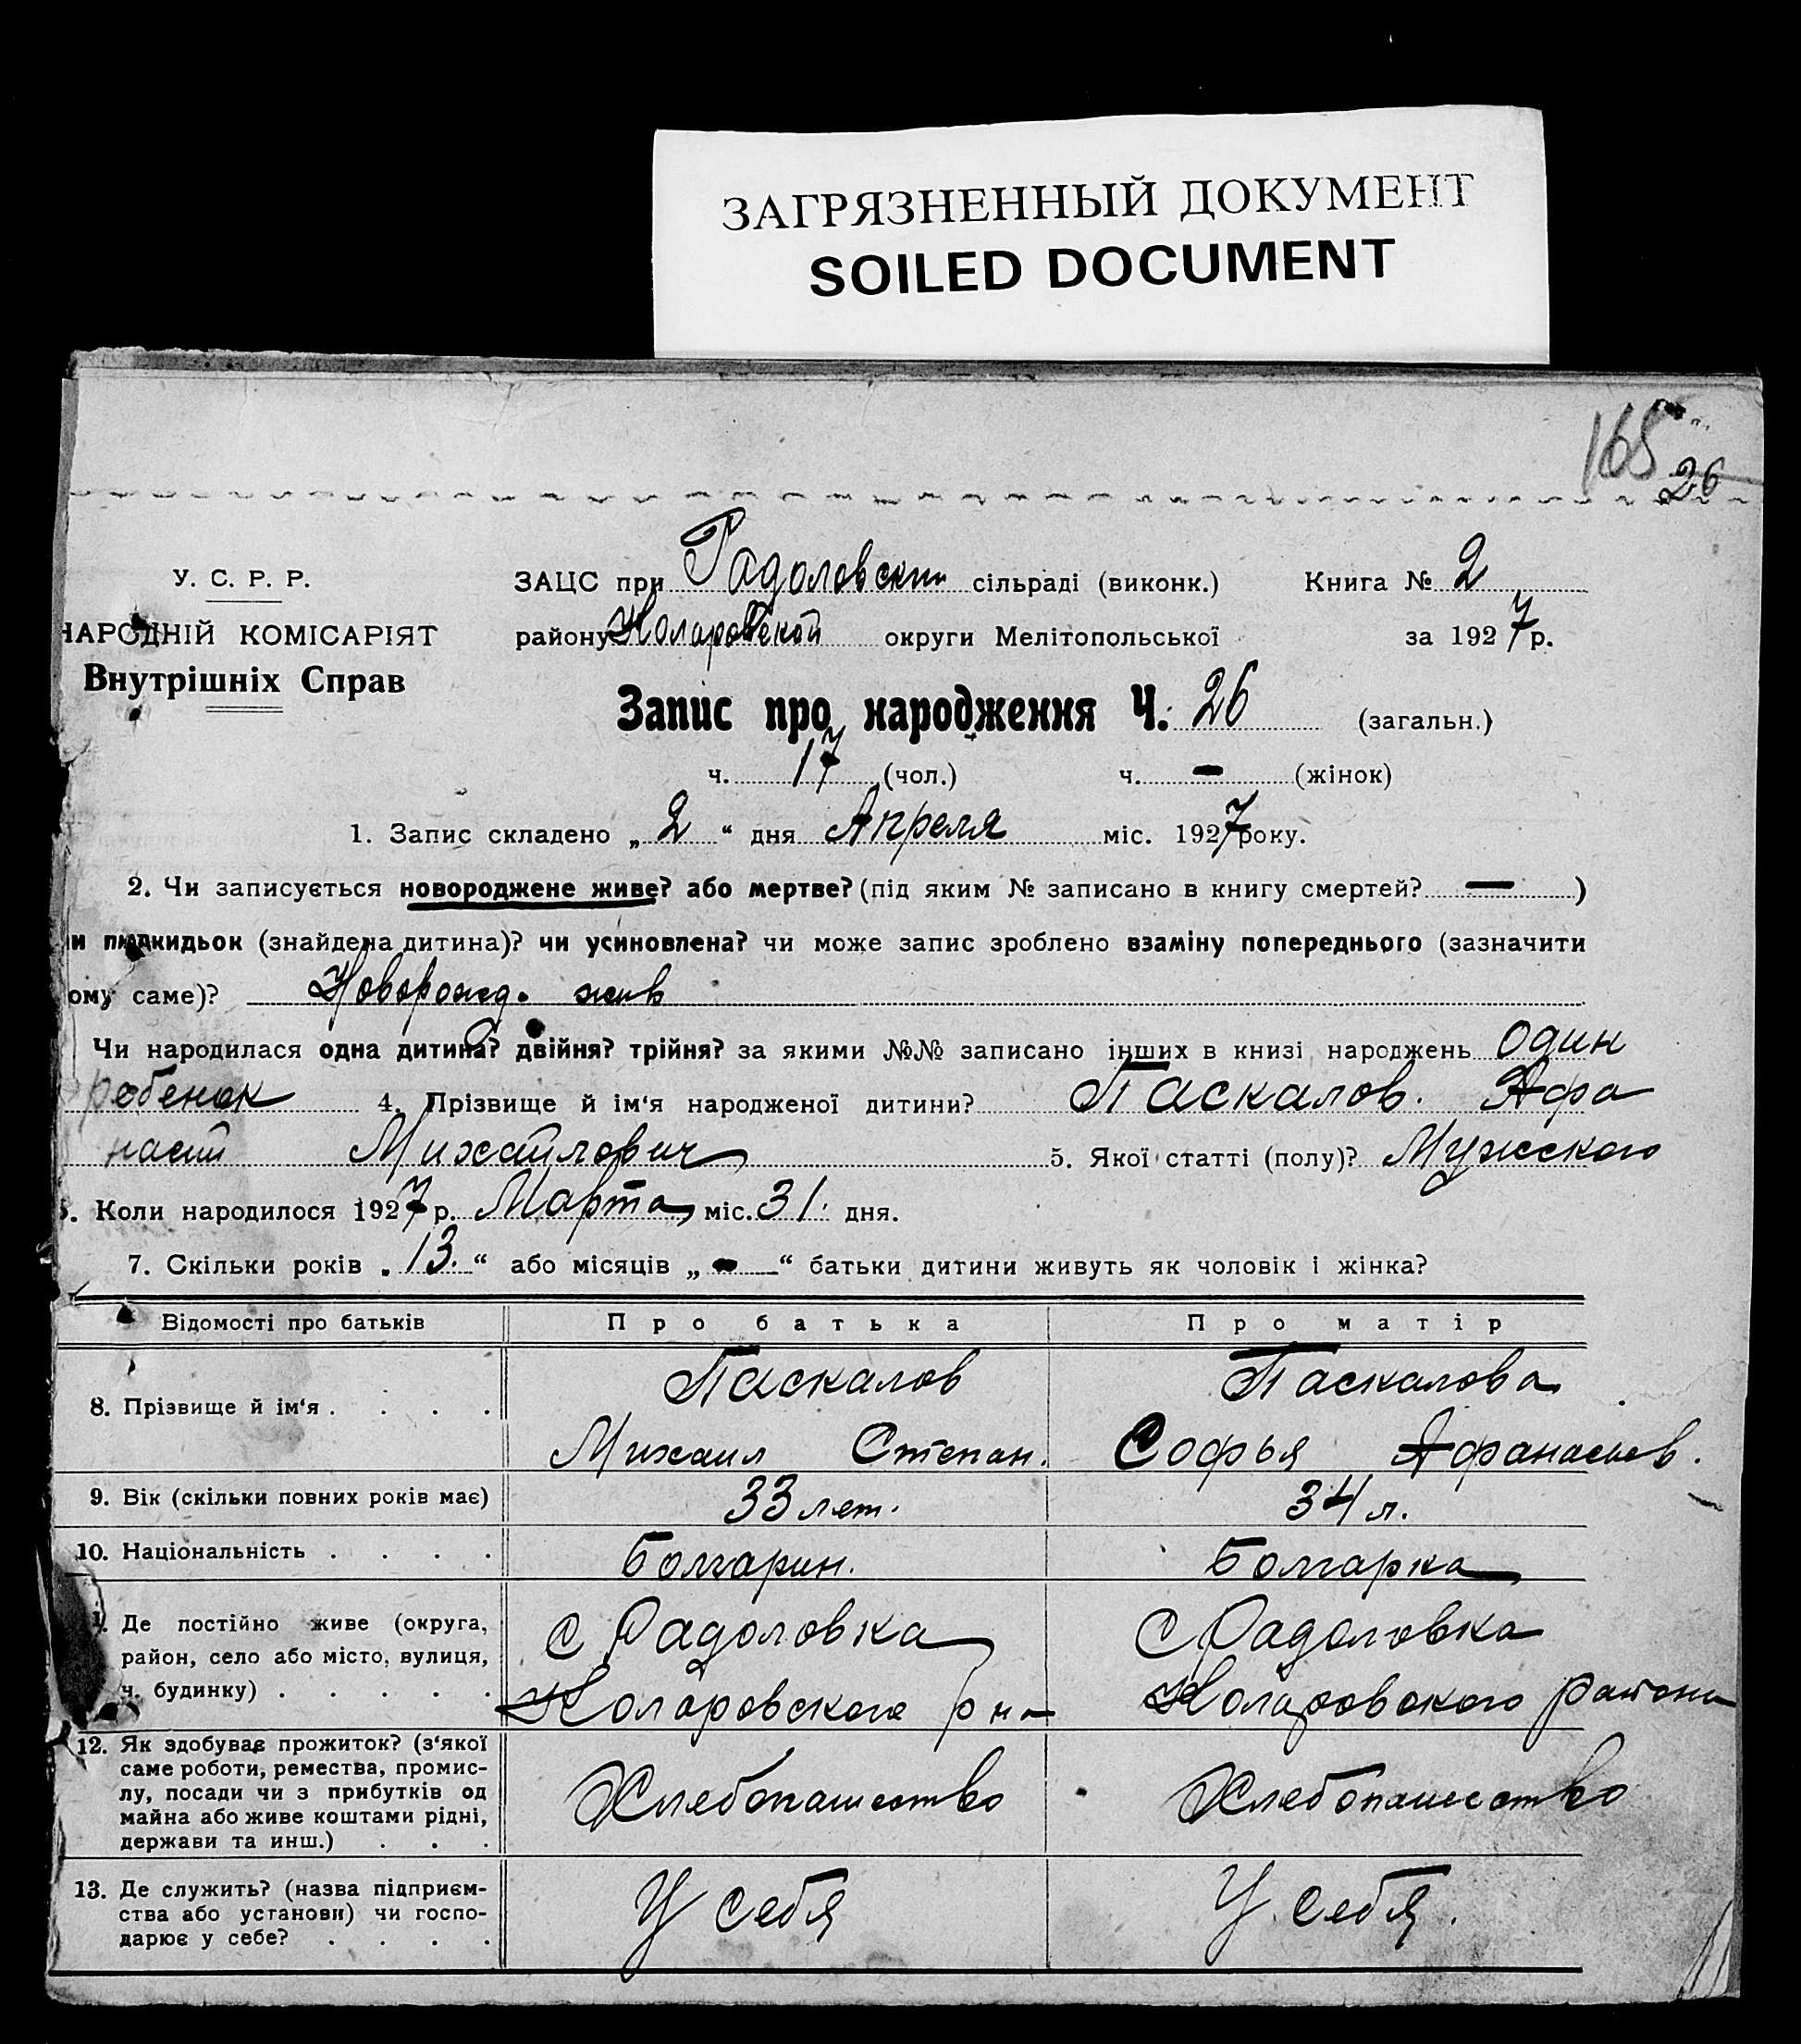 ЗАГРЯЗНЕННЫЙ ДОКУМЕНТ
SOILED DOCUMENT
165
26
У. С. Р. Р.
НАРОДНІЙ КОМІСАРІЯТ
Внутрішніх Справ
ЗАЦС при Радоловским сільраді (виконк.) Книга № 2
району Коларовской округи Мелітопольської за 1927 р.
Запис про народження Ч. 26 (загальн.)
ч. 17 (чол.) ч. – (жінок)
1. Запис складено „ 2 “ дня Апреля міс. 1927 року.
2. Чи записується новороджене живе? або мертве? (під яким № записано в книгу смертей? – )
и підкидьок (знайдена дитина)? чи усиновлена? чи може запис зроблено взаміну попереднього (зазначити
ому саме)? Новорожд. жив
Чи народилася одна дитина? двійня? трійня? за якими №№ записано інших в книзі народжень один
ребенок 4. Прізвище й ім‘я народженої дитини? Паскалов. Афа
насий Михайлович 5. Якої статті (полу)? Мужского
6. Коли народилося 1927 р. Марта міс. 31. дня.
7. Скільки років „ 13. “ або місяців „ – “ батьки дитини живуть як чоловік і жінка?
Відомості про батьків Про батька Про матір
8. Прізвище й ім‘я . . . . Паскалов Паскалова
Михаил Степан. Софья Афанасьев.
9. Вік (скільки повних років має) 33 лет. 34 л.
10. Національність . . . . Болгарин. Болгарка
Де постійно живе (округа, с Радоловка с Радоловка
район, село або місто, вулиця,
ч. будинку) . . . . . Коларовского р на Коларовского района
12. Як здобуває прожиток? (з‘якої
саме роботи, ремества, промис-
лу, посади чи з прибутків од Хлебопашество Хлебопашество
майна або живе коштами рідні,
держави та инш.) . . .
13. Де служить? (назва підприєм- У себя У себя.
ства або установи) чи госпо-
дарює у себе? . . . .